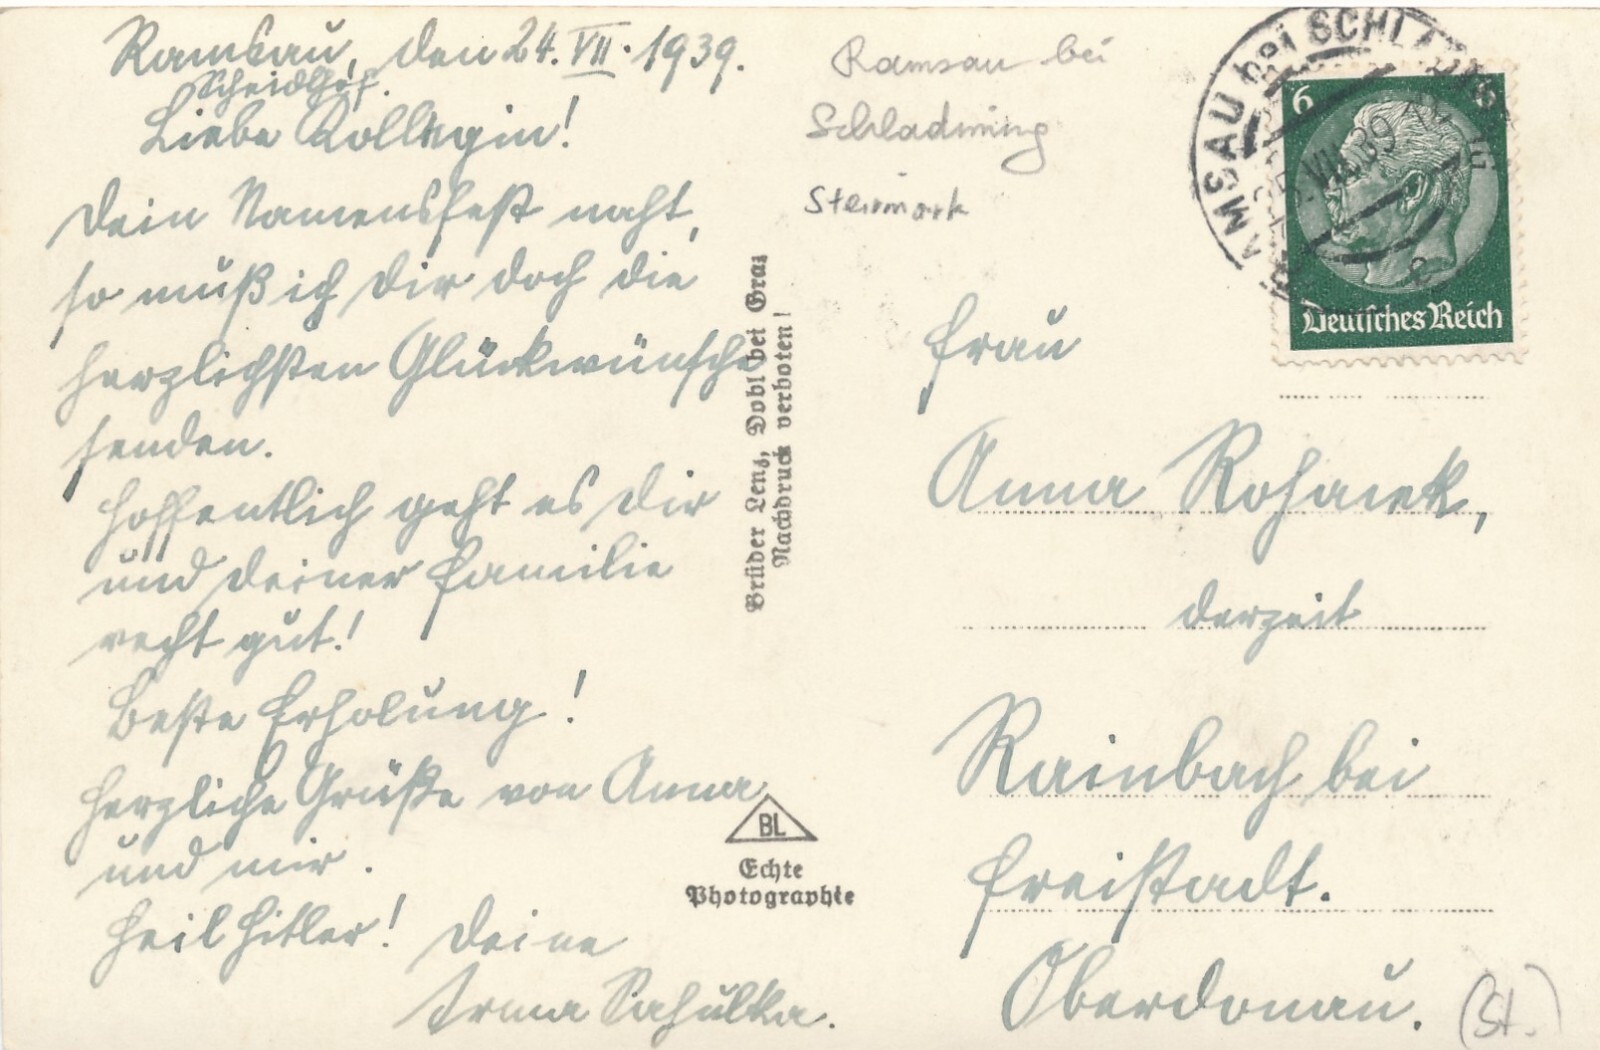 Ramsau, den 24. VII. 1939.
Scheidlhof.
Liebe Kollegin!
Dein Namensfest naht,
so muß ich Dir doch die
herzlichsten Glückwünsche
senden.
Hoffentlich geht es Dir
und Deiner Familie
recht gut!
Beste Erholung!
Herzliche Grüße von Anna
und mir.
Heil Hitler! Deine
Irma Sahulka.
Brüder Lenz, Dobl bei Graz
Nachdruck verboten!
BL
Echte
Photographie
Ramsau bei
Schladming
Steiermark
RAMSAU bei SCHLADMING
VII.39
6 6
Deutsches Reich
Frau
Anna
derzeit
Rainbach bei
Freistadt.
Oberdonau.
(St.)